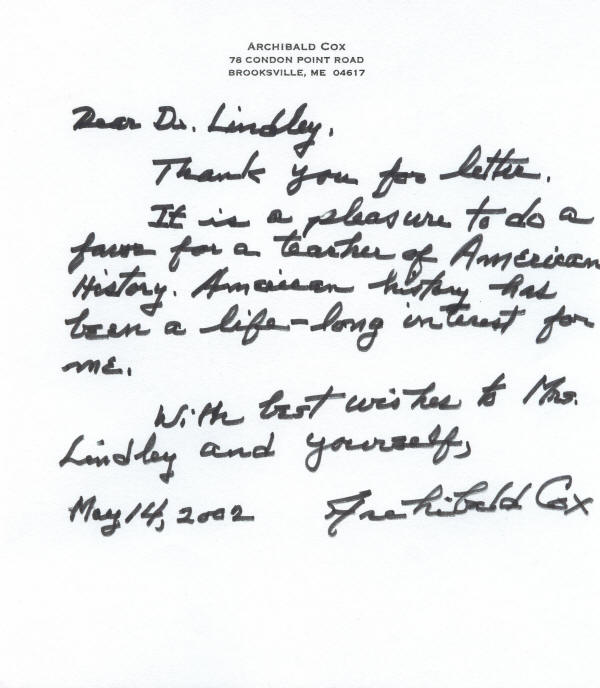 ARCHIBALD COX
78 CONDON POINT ROAD
BROOKSVILLE, ME 04617
Dear Dr. Lindley,
Thank you for letter.
It is a pleasure to do a
favor for a teacher of American
History. American history has
been a life-long interest for
me.
With best wishes to Mrs.
Lindley and yourself,
May 14, 2002 Archibald Cox